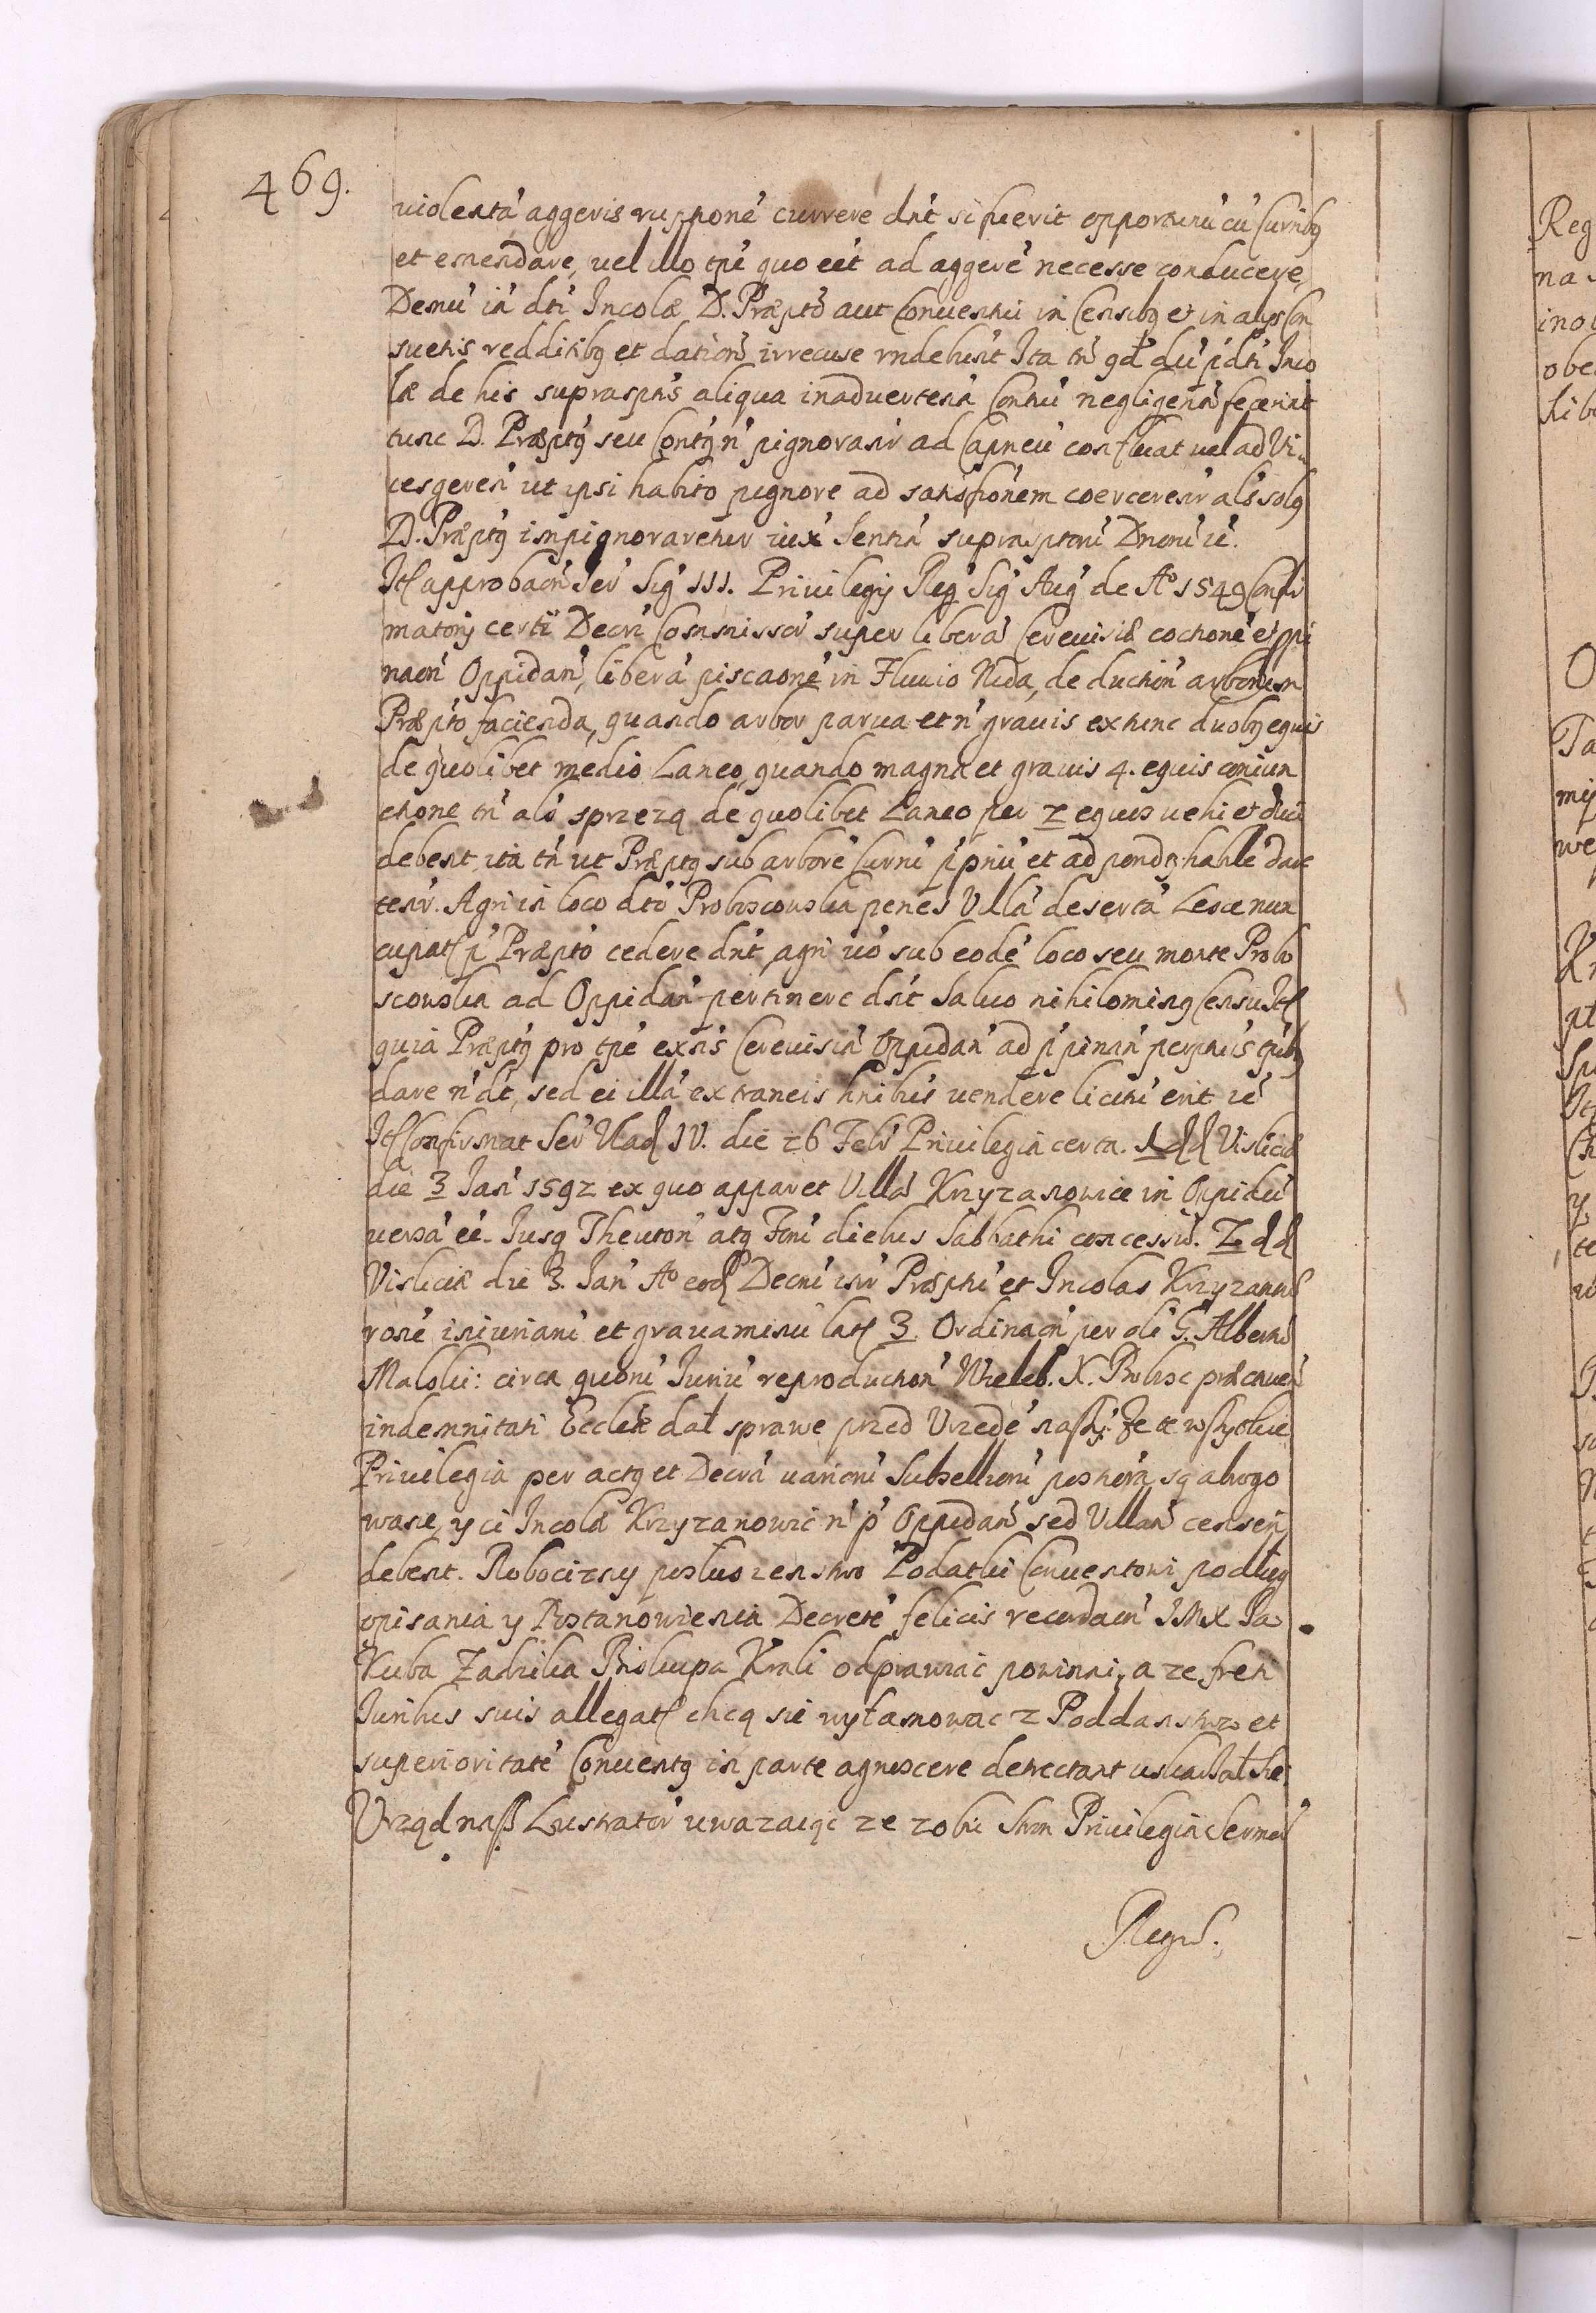 469.
uiolentá aggeris rupponé currere dnt́ si fuerit opportunú cú Curribꝫ
et emendare, uel illo tpé quo eét ad aggeré necesse conducere,
Demú iá dti Incolæ D. Præptó aut Conuentui in Censibꝫ et in alijs Con
suetis redditibꝫ et dationí irrecuse rndebunt́ Ita tń qd́ dú pdti Inco
læ de his suprasptis aliqua inaduertená negligená fecerint
tunc D. Præptꝫ seu Contꝫ ń pignorasí ad Capneú confluat uel ad Vi
cesgereń ut ipsi habito pignore ad satisfionem coercerenr̃ als solꝫ
D. Præptꝫ impignoraretur iux́ Sentiá suprasptorú Dnorú ić.
Itꝭ approbaoń Ser Sig III. Priuilegij Reg Sig Aug de Ao 1549 Confir
matorij certi Decri Commissor super liberá Cereuisiæ coctioné et ppi
naoń Oppidań, liberá piscaoné in Fluuio Nida, de duction arborum
Præpto facienda, quando arbor parua et ń grauis ex tunc duobꝫ equis
de quolibet medio Laneo, quando magna et grauis 4. equis coniun
ctione tń als sprzezą de quolibet Laneo per 2 equos uehi et duci
debent, ita tń ut Præptꝫ sub arboré Curru ppriú et ad pondꝫ habile dare
tenr̃. Agri in loco dto Proboscowska penes Villá desertá Lesce nun
cupatꝭ p Præpto cedere dnt́, agri uó sub eodé loco seu monte Probo
scowska ad Oppidań pertinere dnt́ Saluo nihilominꝫ Censu Itꝭ
quia Præptꝫ pro tpé exns Cereuisiá Oppidań ad ppinań
dare ń dt́, sed ei illá extraneis hnibus uendere licitú erit ić
Itꝭ Confirmat Ser Vladꝭ IV. die 26 Febr Priuilegia certa. 1. dd Visliciæ
die 3 Jań 1592 ex quo apparet Villá Krzyzanowice in Oppidú
uersá eé. Jusqꝫ Theuton atqꝫ Fori diebus Sabbathi concessú. 2. dd
Visliciæ die 3. Jań Ao eodꝭ Decrú intr Præptú et Incolas Krzyzan
rone iniuriarú et grauaminú latꝭ 3. Ordinaoń per olí G. Albertú
Malski: circa quorú Juriú reproduction Wieleb. X. Probosc præcauen
indemnitati Eccliæ dał sprawe przed Vrzedé naszý. Ze te wszytkie
Priuilegia per actꝫ et Decrá uariorú Subselliorú są abrogo
wane, y ci Incolæ Krzyzanowic ń p Oppidań sed Villań censeri
debent. Robocizny posluszenstwo Podatki Conuentowi podlug
opisania y Postanowienia Decreté felicis recordaoń JMX Ja
Kuba Zadzika Biskupa Krak odprawiac powinni, a ze freti
Juribus suis allegatꝭ chcą sie wyłamowac z Poddanstwa et
superioritaté Conuentꝫ in parte agnoscere detrectant uskarżał sie
Vrząd nasz Lustrator uwazaiąc ze z obu Stron Priuilegia Serm
Regum.